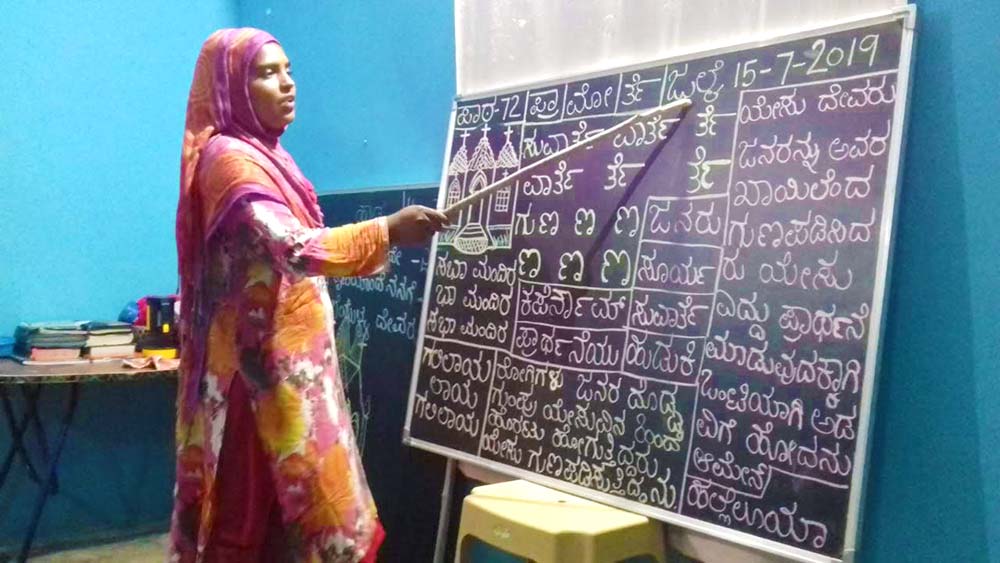 ಪಾಠ-72 ಪ್ರಾ ಮೋ ರ್ತೆ ಜುಲೈ 15-7-2019
ಸುವಾರ್ತೆ ವಾರ್ತೆ ರ್ತೆ
ವಾರ್ತೆ ರ್ತೆ ರ್ತೆ
ಗುಣ ಣ ಣ ಜನರು
ಣ ಣ ಣ ಸೂರ್ಯ
ಸಭಾ ಮಂದಿರ
ಭಾ ಮಂದಿರ
ಸಭಾ ಮಂದಿರ
ಕಪೆರ್ನಾಮ್ ಸುವಾರ್ತೆ
ಪ್ರಾರ್ಥನೆಯು ಹುಡುಕಿ
ಗಲಿಲಾಯ
ಲಾಯ
ಗಲಿಲಾಯ
ರೋಗಿಗಳು ಜನರ ದೊಡ್ಡ
ಗುಂಪು ಯೇಸುವಿನ ಹಿಂದೆ
ಹೊರಟು ಹೋಗುತ್ತಿದ್ದರು
ಯೇಸು ಗುಣಪಡಿಸುತ್ತಿದ್ದನು.
ಯೇಸು ದೇವರು
ಜನರನ್ನು ಅವರ
ಖಾಯಿಲೆಂದ
ಗುಣಪಡಿಸಿದ
ರು ಯೇಸು
ಎದ್ದು ಪ್ರಾರ್ಥನೆ
ಮಾಡುವುದಕ್ಕಾಗಿ
ಒಂಟಿಯಾಗಿ ಅಡ
ವಿಗೆ ಹೋದನು
ಆಮೇನ್
ಹಲ್ಲೆಲೂಯಾ